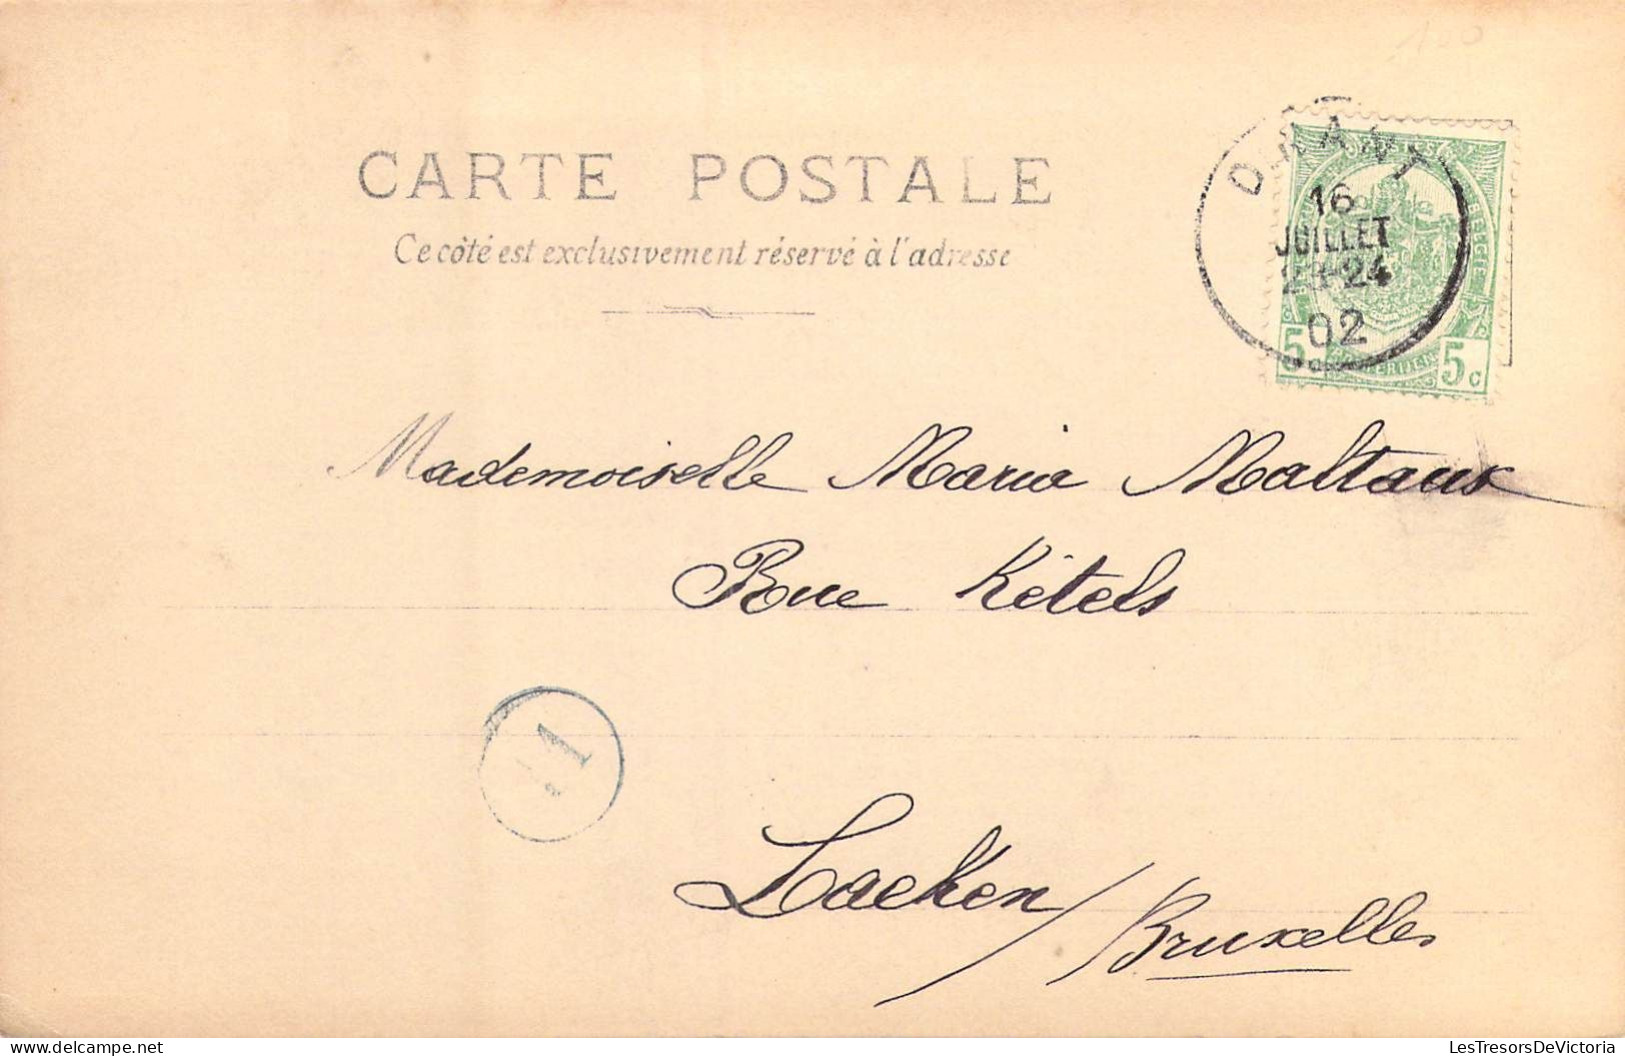 100
CARTE POSTALE
Ce côté est exclusivement réservé à l'adresse
DINANT
16
JUILLET
23-24
02
BELGIE
5c 5c
Mademoiselle Maria Maltaux
Rue Kétels
1
Laeken / Bruxelles
LesTresorsDeVictoria